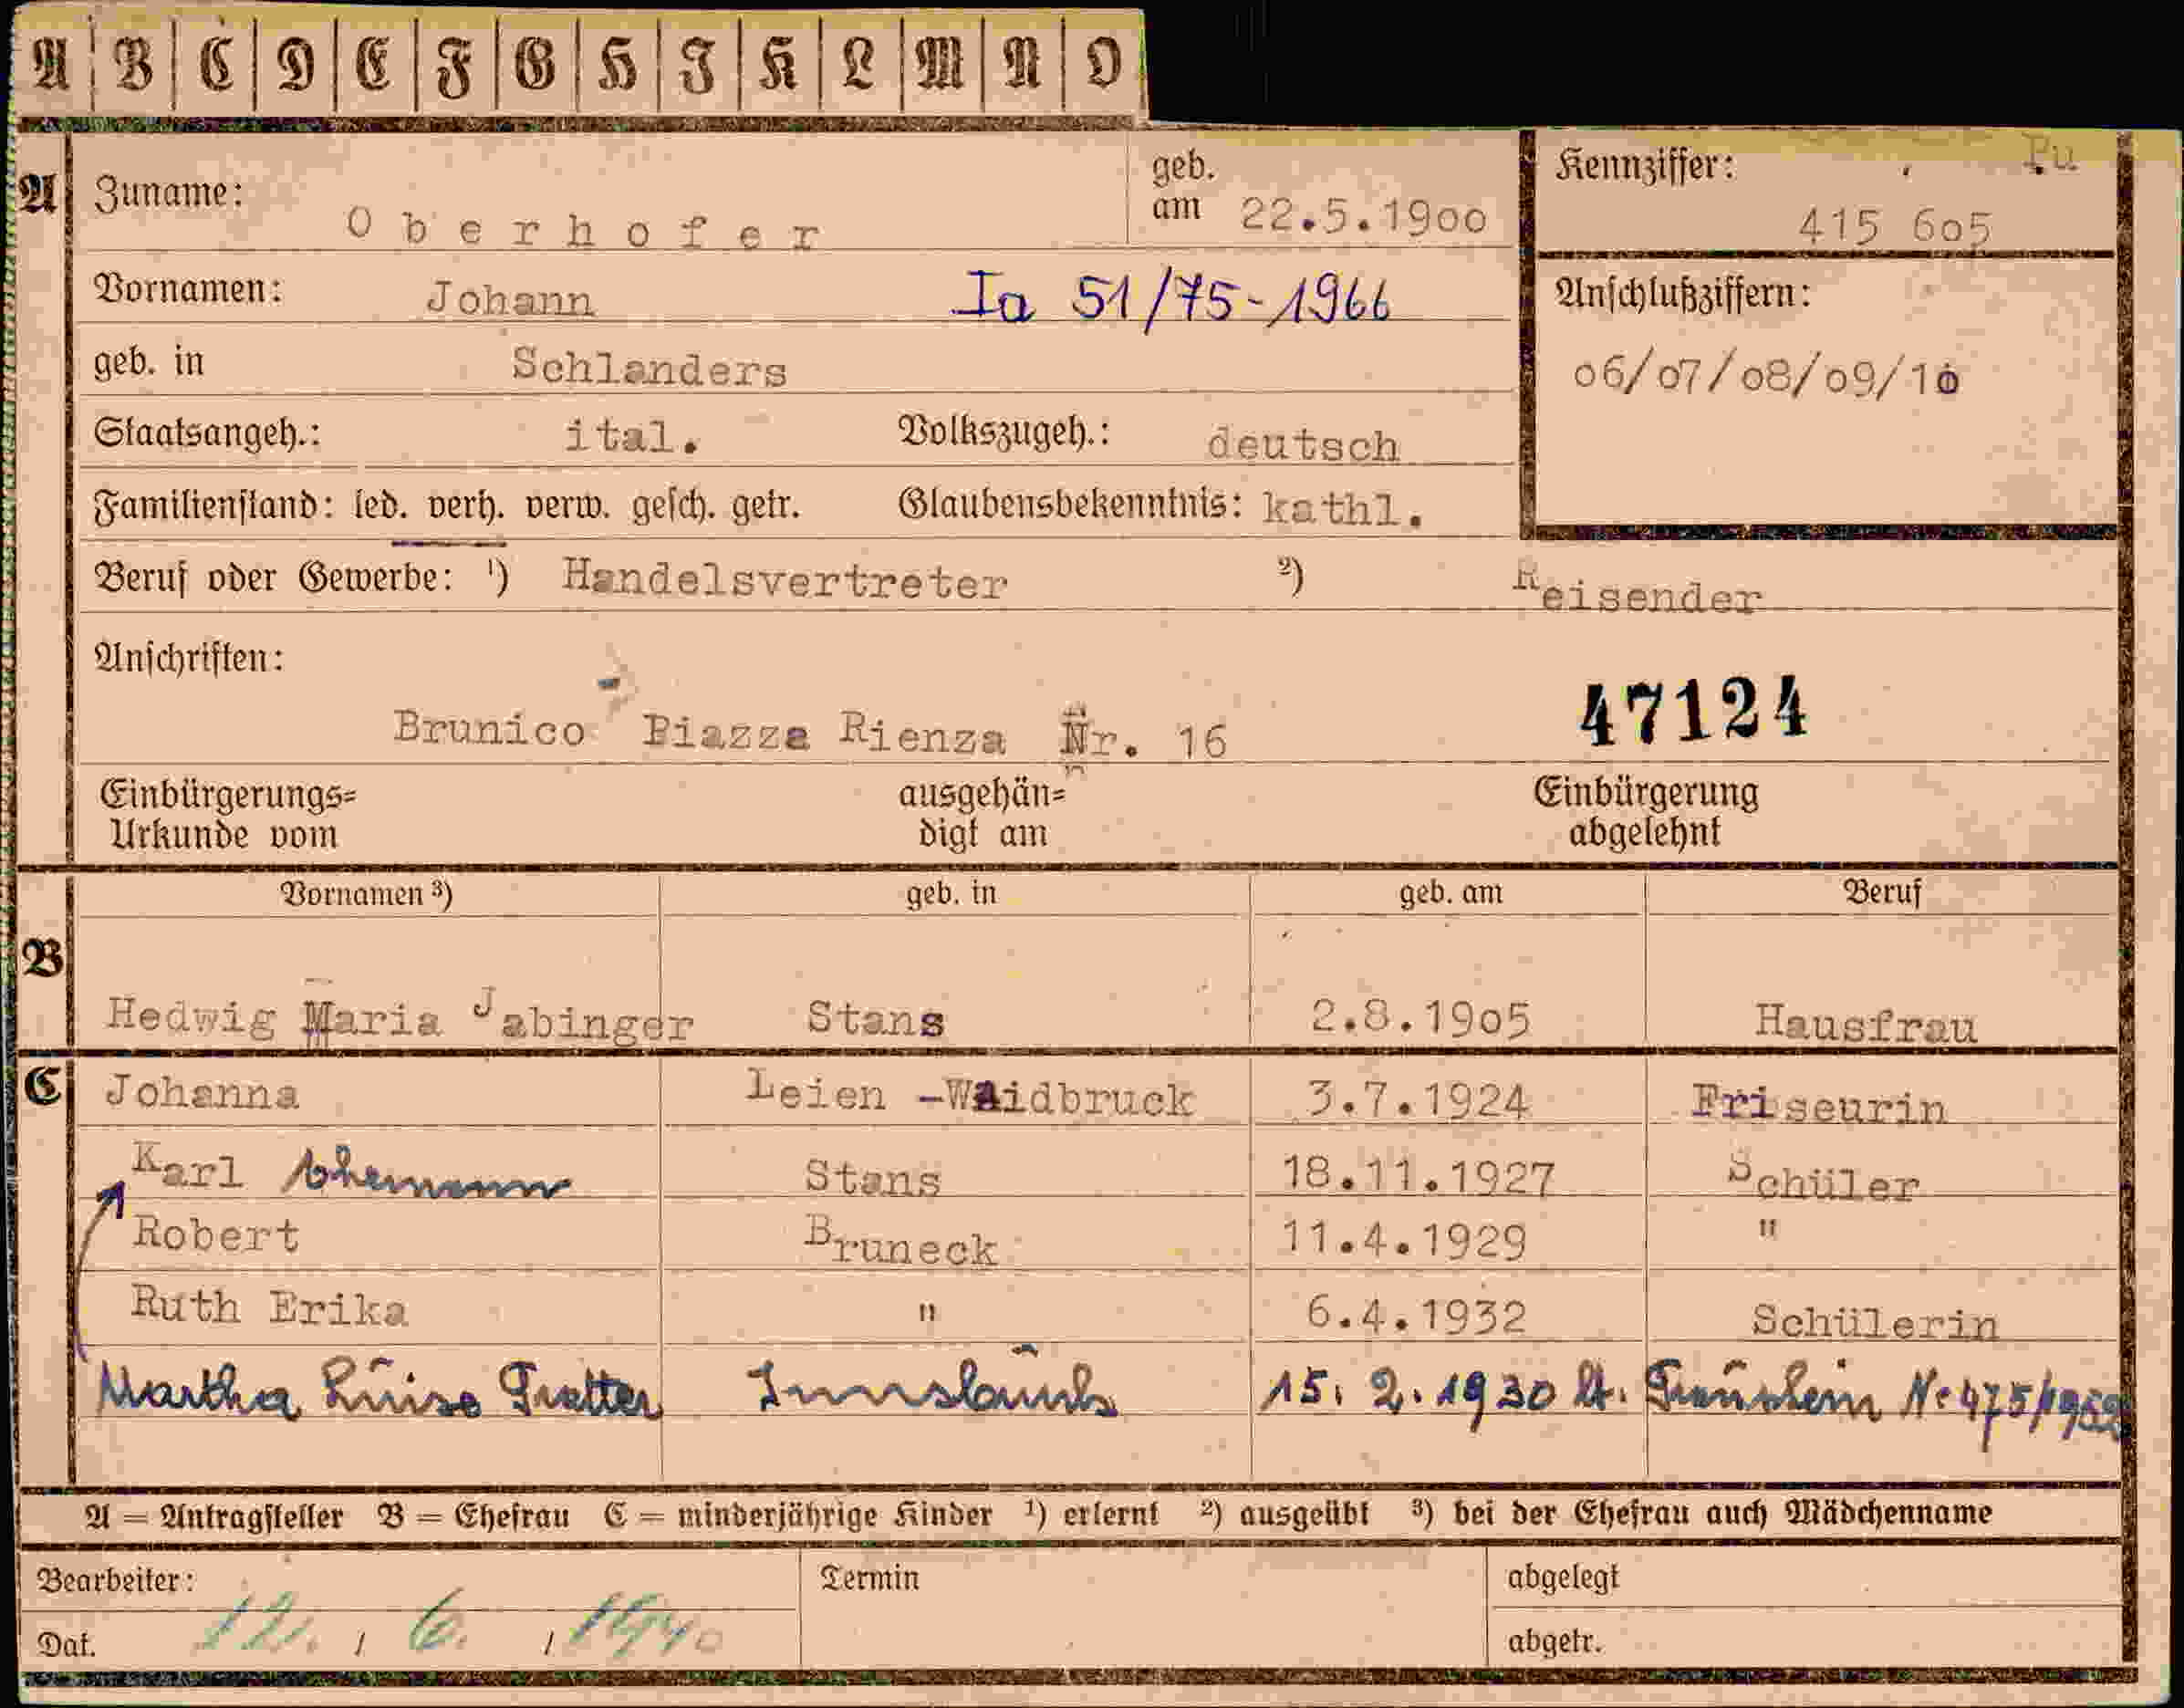 A B C D E F G H I K L M N O
A Zuname: Oberhofer geb. am 22.5.1900
Kennziffer: Pu
415 605
Vornamen: Johann Ia 51/75-1966
Anschlußziffern:
06/07/08/09/10
geb. in Schlanders
Staatsangeh.: ital. Volkszugeh.: deutsch
Familienstand: led. verh. verw. gesch. getr. Glaubensbekenntnis: kathl.
Beruf oder Gewerbe: 1) Handelsvertreter 2) Reisender
Anschriften:
Brunico Piazza Rienza Nr. 16 47124
Einbürgerungs= Urkunde vom
ausgehän= digt am
Einbürgerung abgelehnt
Vornamen 3) geb. in geb. am Beruf
B Hedwig Maria Jabinger Stans 2.8.1905 Hausfrau
C Johanna Leien -Waidbruck 3.7.1924 Friseurin
Karl Ehemann Stans 18.11.1927 Schüler
Robert Bruneck 11.4.1929 "
Ruth Erika " 6.4.1932 Schülerin
Martha Luise Tratter Innsbruck 15. 2. 1930 lt. Trauschein Nr 475/1952
A = Antragsteller B = Ehefrau C = minderjährige Kinder 1) erlernt 2) ausgeübt 3) bei der Ehefrau auch Mädchenname
Bearbeiter: Termin abgelegt
Dat. 12. / 6. / 1940 abgetr.